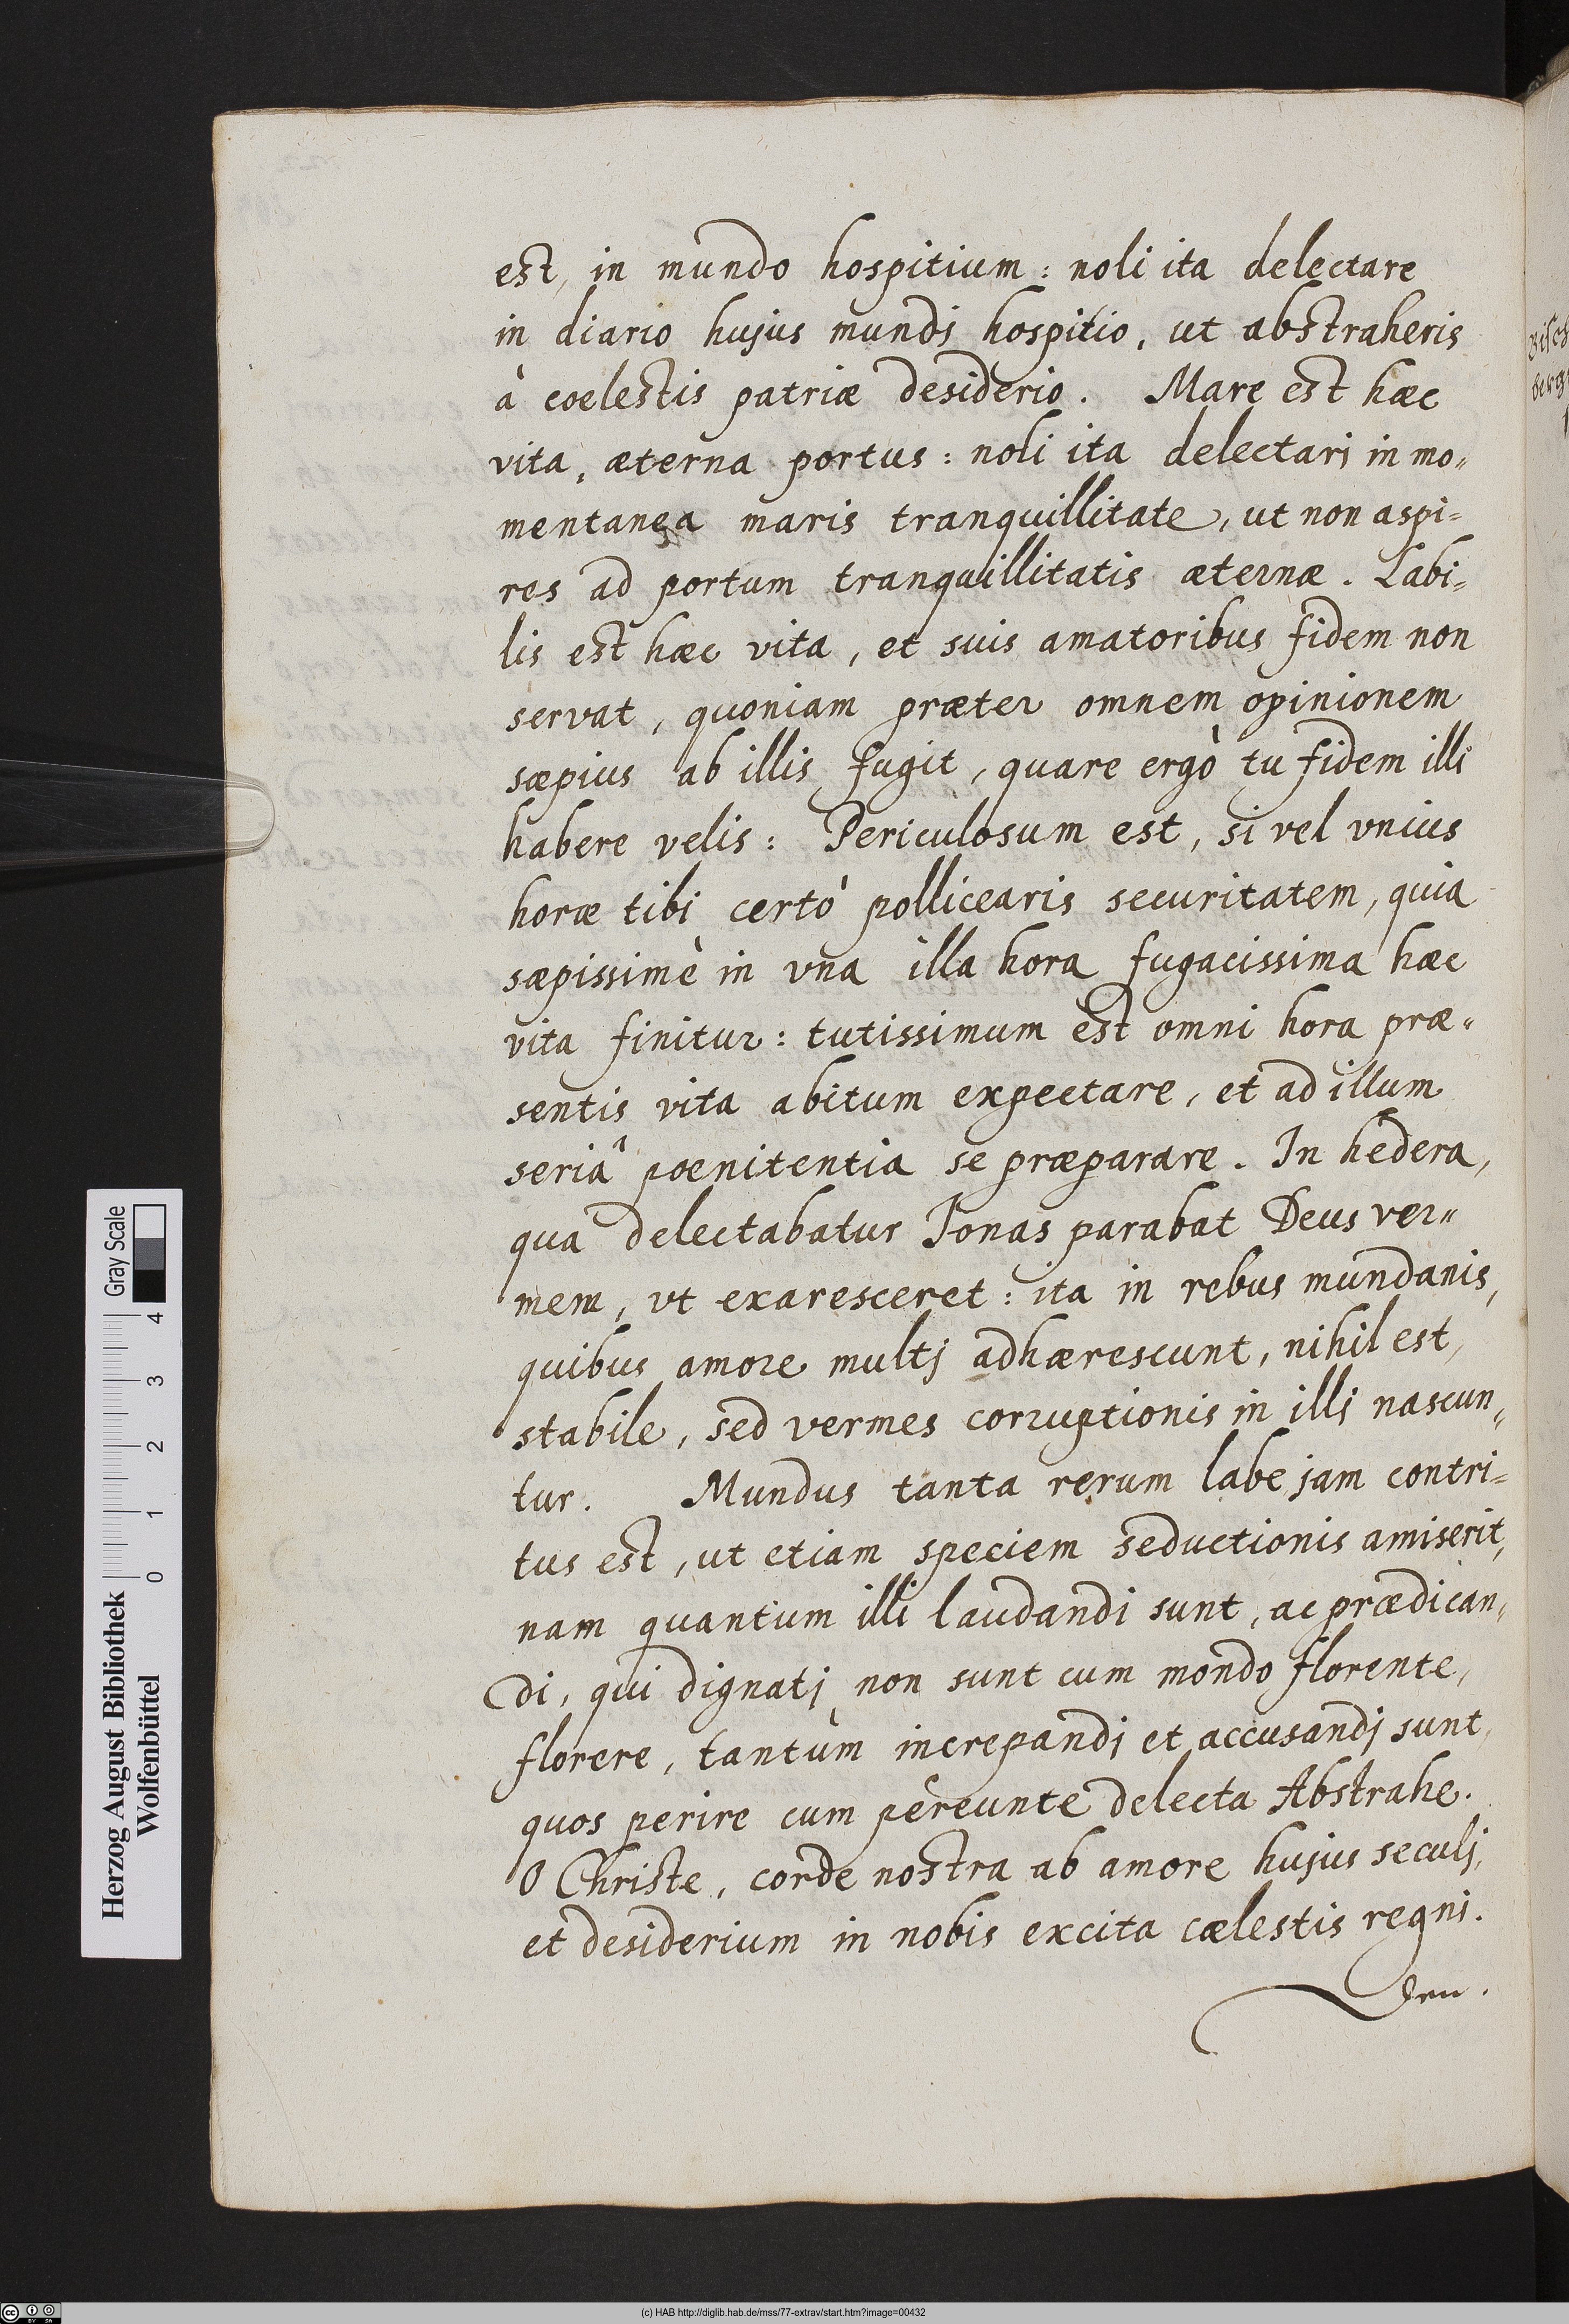 est, in mundo hospitium: noli ita delectare
in diario hujus mundi hospitio, ut abstraheris
à coelestis patriæ desiderio. Mare est hæc
vita, æterna portus: noli ita delectari in mo„
mentanea maris tranquillitate, ut non aspi=
res ad portum tranquillitatis æternæ. Labi=
lis est hæc vita, et suis amatoribus fidem non
servat, quoniam præter omnem opinionem
sæpius ab illis fugit, quare ergò tu fidem illi
habere velis: Periculosum est, si vel vnius
horæ tibi certò pollicearis securitatem, quia
sæpissimè in vna illa hora fugacissima hæc
vita finitur: tutissimum est omni hora præ„
sentis vita abitum expectare, et ad illum
seriâ poenitentia se præparare. In hedera,
qua delectabatur Jonas parabat Deus ver„
mem, vt exaresceret: ita in rebus mundanis,
quibus amore multj adhærescunt, nihil est,
stabile, sed vermes corruptionis in illj nascun„
tur. Mundus tanta rerum labe jam contri=
tus est, ut etiam speciem seductionis amiserit,
nam quantum illi laudandi sunt, ac prædican„
di, qui dignatj non sunt cum mondo florente,
florere, tantùm increpandj et accusandj sunt,
quos perire cum pereunte delecta Abstrahe.
O Christe, corde nostra ab amore hujus seculj,
et desiderium in nobis excita cælestis regni.
Gray Scale
Herzog August Bibliothek
Wolfenbüttel
0 1 2 3 4
(c) HAB http://diglib.hab.de/mss/77-extrav/start.htm?image=00432